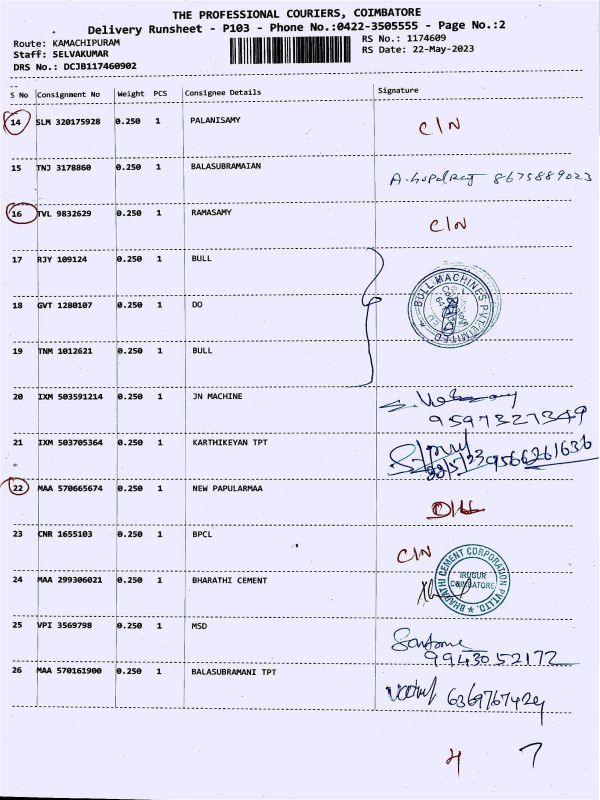 THE PROFESSIONAL COURIERS, COIMBATORE
Delivery Runsheet - P103 - Phone No.:0422-3505555 - Page No.:2
Route: KAMACHIPURAM
RS No.: 1174609
Staff: SELVAKUMAR
RS Date: 22-May-2023
DRS No.: DCJB117460902
S No Consignment No Weight PCS Consignee Details Signature
14 SLM 320175928 0.250 1 PALANISAMY C/N
15 TNJ 3178860 0.250 1 BALASUBRAMAIAN 8675889023
16 TVL 9832629 0.250 1 RAMASAMY C/N
17 RJY 109124 0.250 1 BULL
BULL MACHINES PVT. LIMITED
18 GVT 1280107 0.250 1 DO
19 TNM 1012621 0.250 1 BULL
20 IXM 503591214 0.250 1 JN MACHINE
9597327349
21 IXM 503705364 0.250 1 KARTHIKEYAN TPT
22/5/23 9566261636
22 MAA 570665674 0.250 1 NEW PAPULARMAA
23 CNR 1655103 0.250 1 BPCL C/N
24 MAA 299306021 0.250 1 BHARATHI CEMENT
BHARATHI CEMENT CORPORATION PVT.LTD.
IRUGUR
COIMBATORE
25 VPI 3569798 0.250 1 MSD
9943052172
26 MAA 570161900 0.250 1 BALASUBRAMANI TPT
4 7